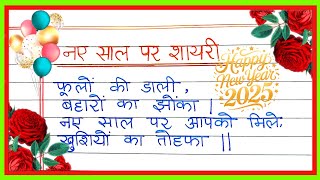 नए साल पर शायरी
फूलों की डाली,
बहारों का झौंका |
नए साल पर आपको मिले,
खुशियों का तोहफा ||
Happy
New Year
2025